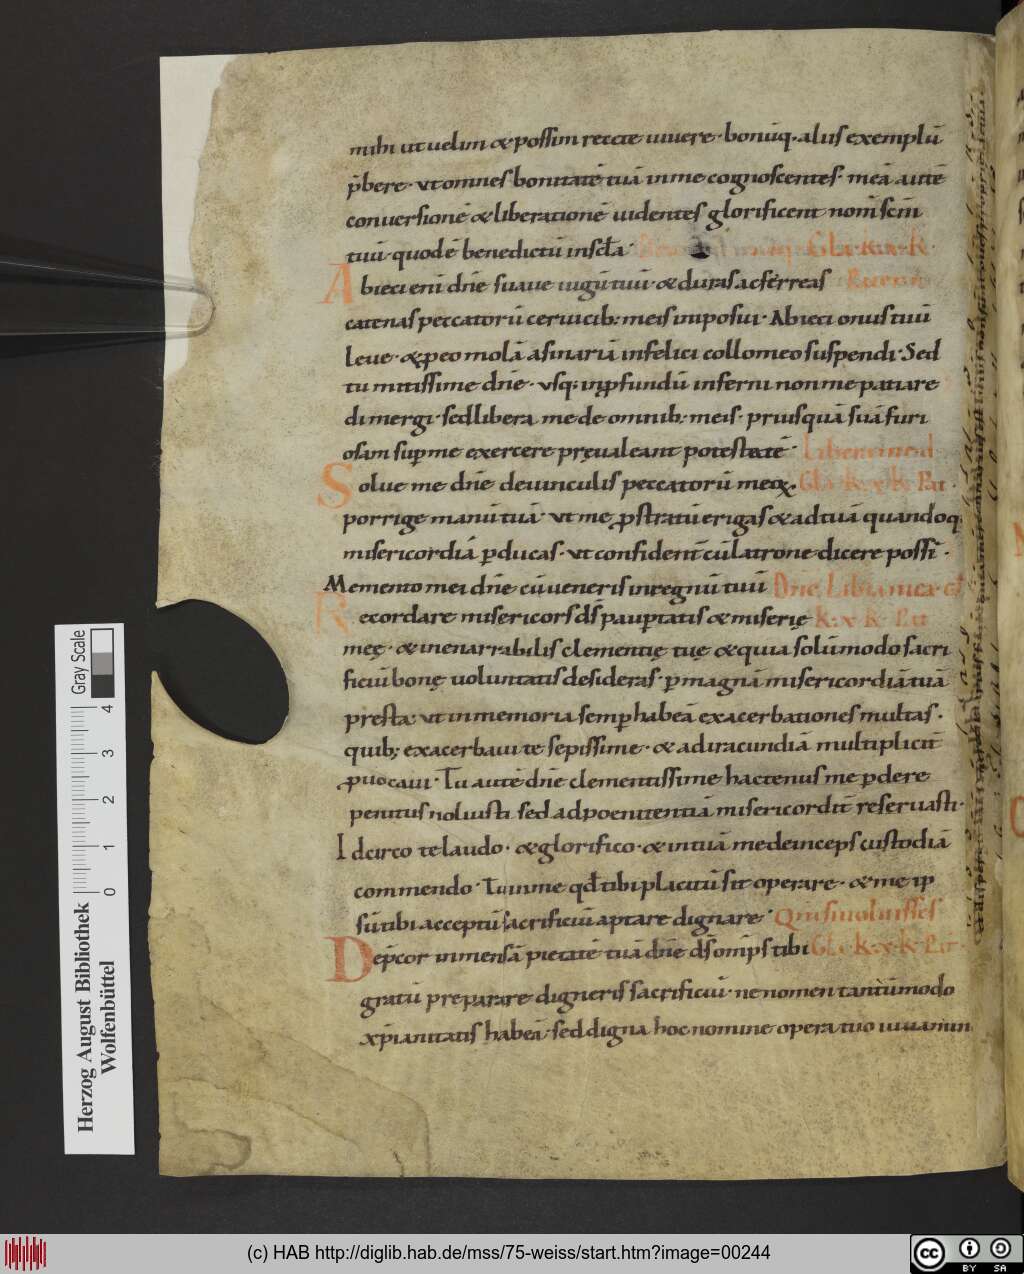 mihi ut uelim & possim recte uiuere · bonūq· aliis exemplū
p̄bere · ut omnes bonitatē tuā in me cognoscentes · meā autē
conuersionē & liberationē uidentes glorificent nom̄ scm̄
tuū · quod ē benedictū in scła · Gła · k· x· k·
Abieci eni dn̄e suaue iugū tuū · & duras ac ferreas
catenas peccatorū ceruicib: meis imposui · Abieci onus tuū
leue · & p eo molā asinariā infelici collo meo suspendi · Sed
tu mitissime dn̄e · usq; in pfundū inferni non me patiare
dimergi · sed libera me de omnib; meis · priusquā suā furi
osam sup me exercere pręualeant potestatē · Libera me d
Solue me dn̄e de uinculis peccatorū meoꝝ · Gła · k· x· k· P̄at ·
porrige manū tuā · ut me ꝓstratū erigas & ad tuā quandoq;
misericordiā ꝑducas · ut confident̄ cū latrone dicere possī ·
Memento mei dn̄e cū ueneris in regnū tuū Dn̄e Libera
Recordare misericors ds̄ pauptatis & miserię k· x· k· P̄at
meę · & inenarrabilis clementię tuę & quia solūmodo sacri
ficiū bonę uoluntatis desideras · ꝑ magnā misericordiā tuā
presta: ut in memoria semp habeā exacerbationes multas ·
quib; exacerbaui te sepissime · & ad iracundiā multiplicit̄
ꝓuocaui · Tu autē dn̄e clementissime hactenus me ꝑdere
penitus noluisti sed ad poenitentiā misericordit̄ reseruasti ·
Idcirco te laudo · & glorifico · & in tuā me deinceps custodiā
commendo · Tu in me qd̄ tibi placitū sit operare · & me ip
sū tibi acceptū sacrificiū aptare dignare · Qm̄ si uoluisses
Dep̄cor inmensā pietatē tuā dn̄e ds̄ omp̄s tibi Gła · k· x· k· P̄at ·
gratū preparare digneris sacrificiū · ne nomen tantūmodo
xp̄ianitatis habeā · sed digna hoc nomine opera tuo iuuamin
Gray Scale
4 3 2 1 0
Herzog August Bibliothek
Wolfenbüttel
(c) HAB http://diglib.hab.de/mss/75-weiss/start.htm?image=00244
cc BY SA